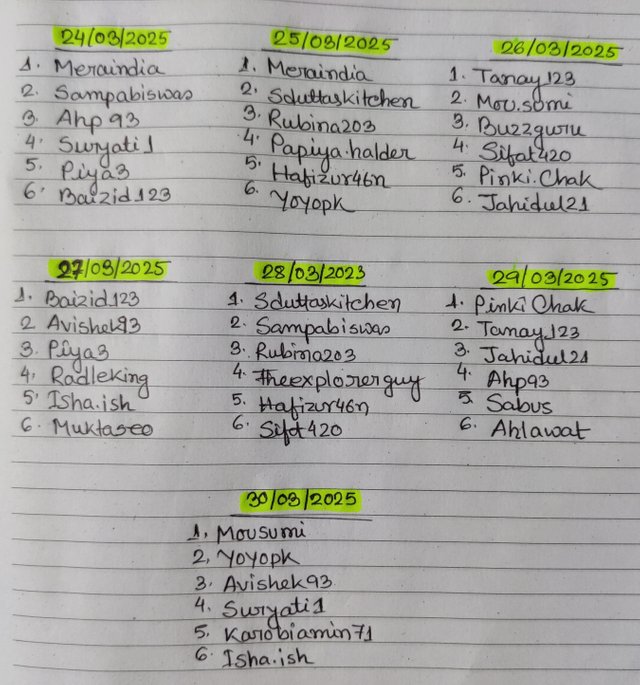 24/03/2025
1. Meraindia
2. Sampabiswas
3. Ahp93
4. Suryati1
5. Piya3
6. Baizid123
25/03/2025
1. Meraindia
2. Sduttaskitchen
3. Rubina203
4. Papiya.halder
5. Hafizur46n
6. Yoyopk
26/03/2025
1. Tanay123
2. Mou.somi
3. Buzzguru
4. Sifat420
5. Pinki.Chak
6. Jahidul21
27/03/2025
1. Baizid123
2 Avishek93
3. Piya3
4. Radleking
5. Isha.ish
6. Muktaseo
28/03/2023
1. Sduttaskitchen
2. Sampabiswas
3. Rubina203
4. Theexplorerguy
5. Hafizur46n
6. Sifat420
29/03/2025
1. Pinki Chak
2. Tanay123
3. Jahidul21
4. Ahp93
5. Sabus
6. Ahlawat
30/03/2025
1, Mousumi
2, Yoyopk
3. Avishek93
4. Suryati1
5. Karobiamin71
6. Isha.ish